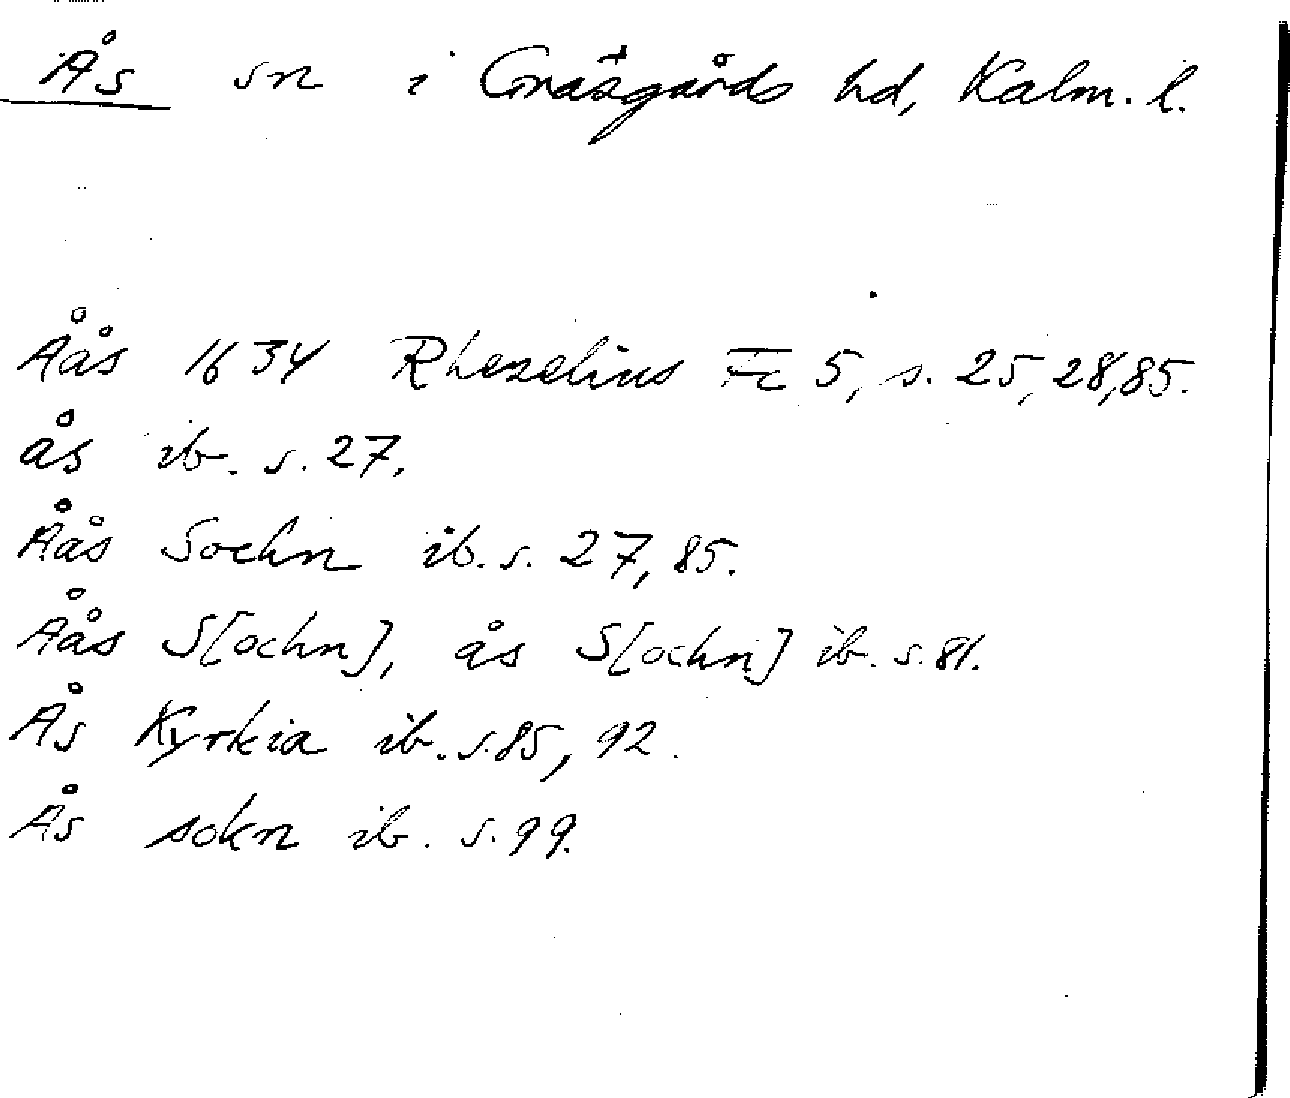 Ås sn i Gräsgårds hd, Kalm. l.
Åås 1634 Rhezelius Fc 5, s. 25, 28, 85.
ås ib. s. 27.
Åås Sochn ib. s. 27, 85.
Åås S[ochn], ås S[ochn] ib. s. 81.
Ås Kyrkia ib. s. 85, 92.
Ås sokn ib. s. 99.